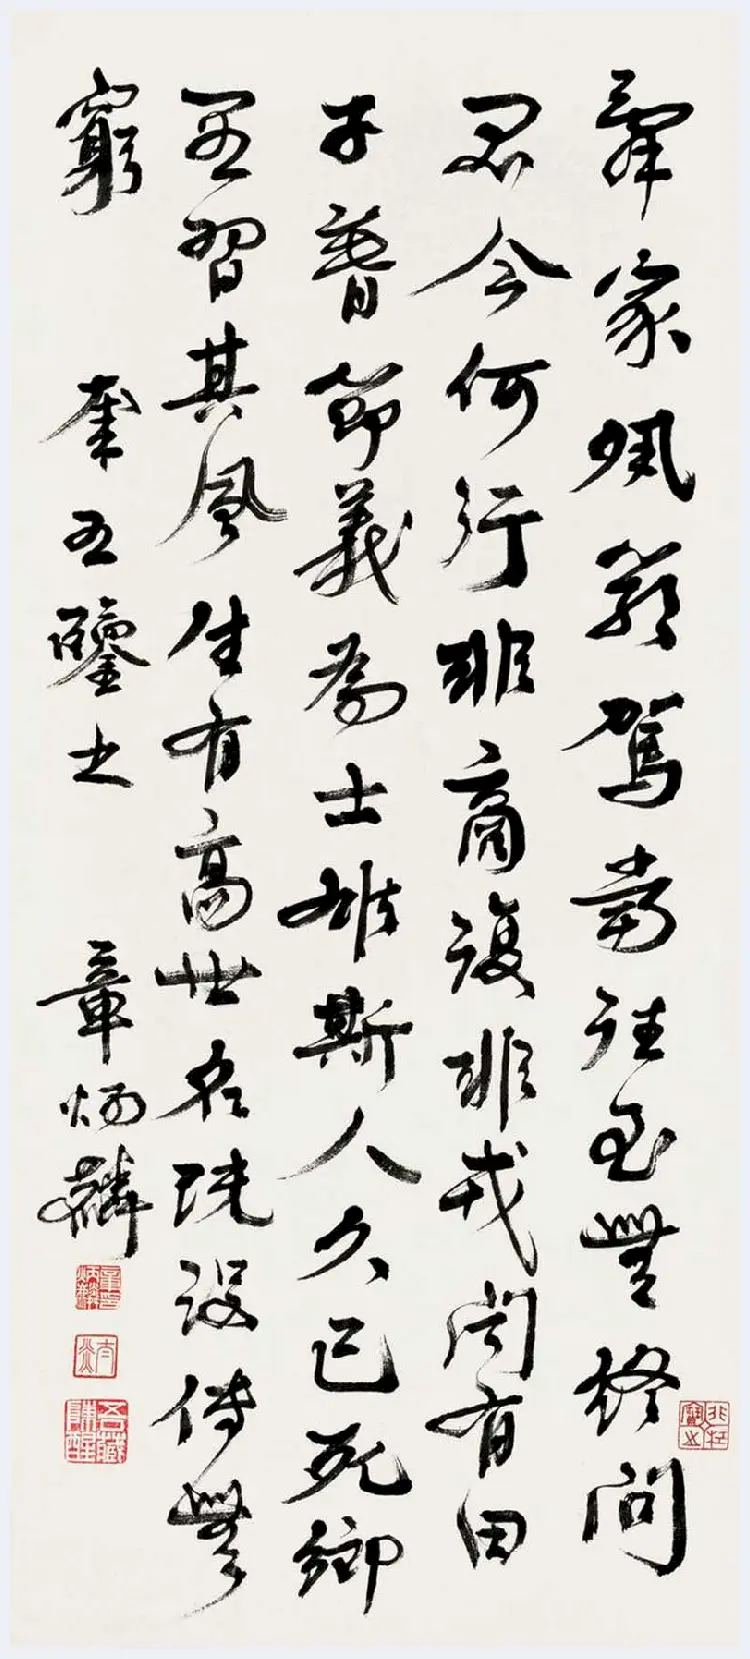 辭家夙嚴駕當往至無終問
君今何行非商復非戎聞有田
子春節義為士雄斯人久已死鄉
里習其風生有高世名既沒傳無
窮
五鑒之
章炳麟
章炳麟印
太炎